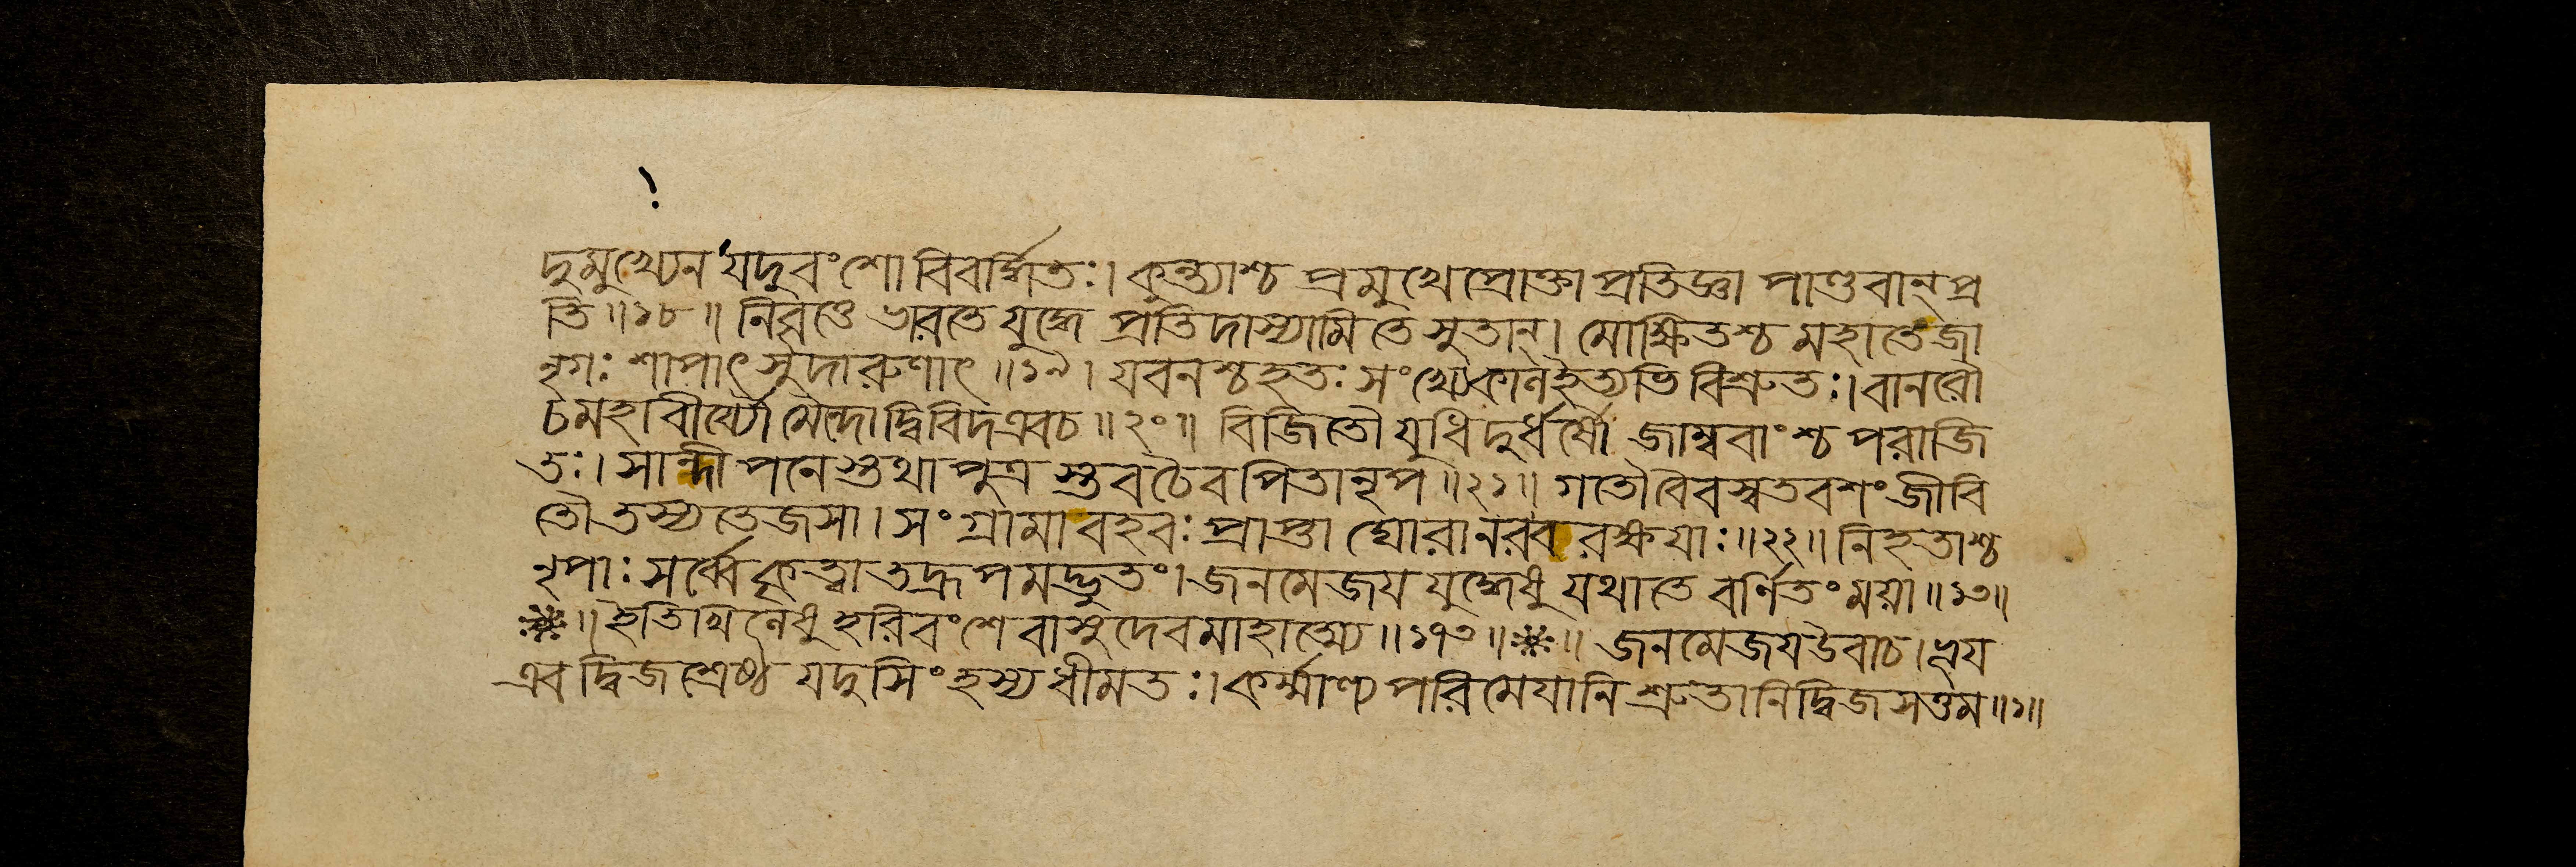 দুমুখ্যেন যদুবংশো বিবর্দ্ধিতঃ। কুন্ত্যাশ্চ প্রমুখে প্রোক্তা প্রতিজ্ঞা পাণ্ডবান্ প্র
তি॥১৮॥ নিবৃত্তে ভারতে যুদ্ধে প্রতিদাস্যামি তে সুতান্। মোক্ষিতশ্চ মহাতেজা
নৃগঃ শাপাৎ সুদারুণাৎ॥১৯। যবনশ্চ হতঃ সংখ্যে কাল ইত্যভি বিশ্রুতঃ। বানরৌ
চ মহাবীর্য্যৌ মৈন্দো দ্বিবিদ এব চ॥২০॥ বিজিতৌ যুধি দুর্ধর্ষৌ জাম্ববাংশ্চ পরাজি
তঃ। সান্দীপনেস্তথা পুত্র স্তব চৈব পিতা নৃপ॥২১॥ গতৌ বৈবস্বতবশং জীবি
তৌ তস্য তেজসা। সংগ্রামা বহবঃ প্রাপ্তা ঘোরা নরব রক্ষয়াঃ॥২২॥ নিহতাশ্চ
নৃপাঃ সর্ব্বে কৃত্বা তদ্রূপমদ্ভুতং। জনমেজয যুদ্ধেষু যথা তে বর্ণিতং ময়া॥১৩॥
॥ইতি খিলেষু হরিবংশে বাসুদেবমাহাত্ম্যে॥১৭৩॥ ॥ জনমেজয উবাচ।
এব দ্বিজশ্রেষ্ঠ যদুসিংহস্য ধীমতঃ। কর্ম্মাণ্যপরিমেযানি শ্রুতানি দ্বিজসত্তম॥১॥